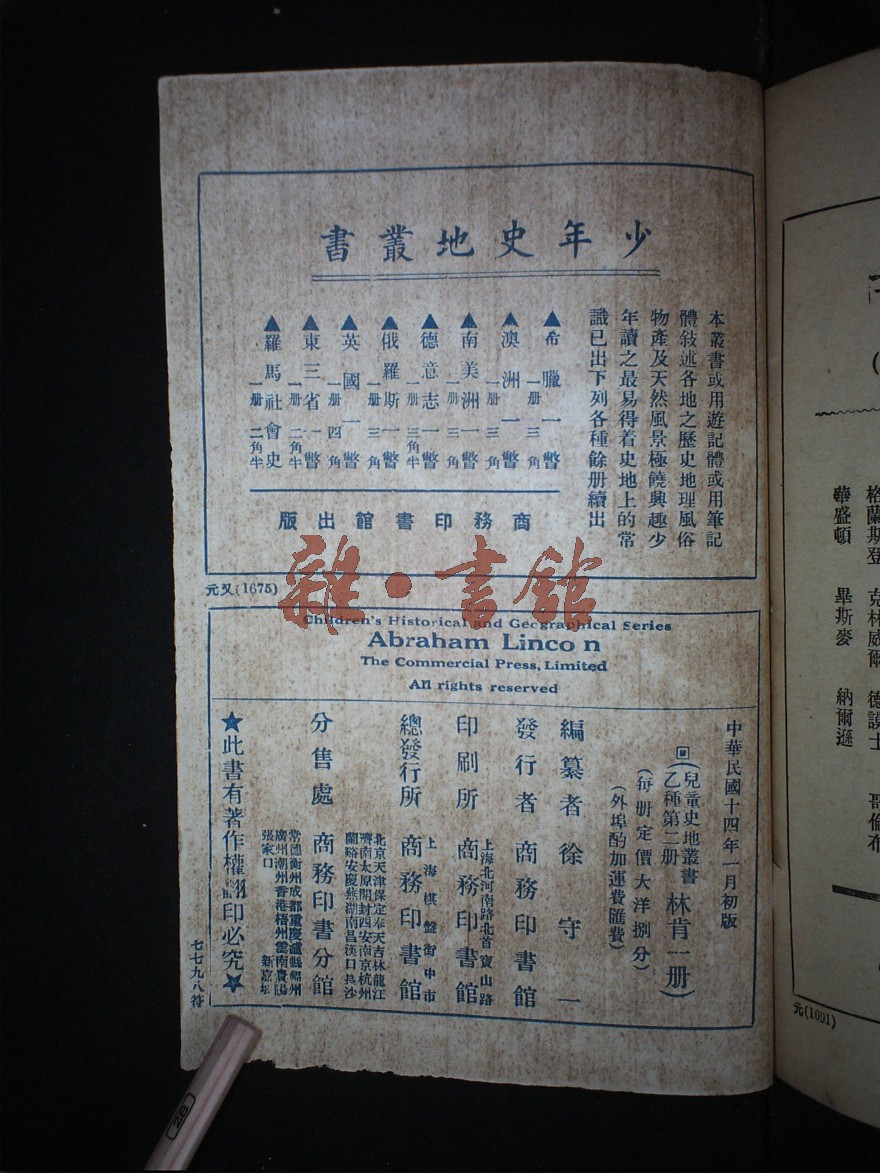 少年史地叢書
本叢書或用遊記體或用筆記
體敍述各地之歷史地理風俗
物產及天然風景極饒興趣少
年讀之最易得着史地上的常
識已出下列各種餘册續出
▲希臘一瞥 一册 三角
▲澳洲一瞥 一册 三角
▲南美洲一瞥 一册 三角
▲德意志一瞥 一册 三角半
▲俄羅斯一瞥 一册 三角
▲英國一瞥 一册 四角
▲東三省一瞥 一册 二角半
▲羅馬社會史 一册 二角半
商務印書館出版
元又(1675)
雜·書館
Children's Historical and Geographical Series
Abraham Linco n
The Commercial Press, Limited
All rights reserved
中華民國十四年一月初版
(兒童史地叢書
乙種第二册 林肯一册)
(每册定價大洋捌分)
(外埠酌加運費匯費)
編纂者 徐守一
發行者 商務印書館
上海北河南路北首寶山路
印刷所 商務印書館
上海棋盤街中市
總發行所 商務印書館
北京天津保定奉天吉林龍江
濟南太原開封西安南京杭州
蘭谿安慶蕪湖南昌漢口長沙
分售處 商務印書分館
常德衡州成都重慶瀘縣福州
廣州潮州香港梧州雲南貴陽
張家口 新嘉坡
★此書有著作權翻印必究★
七七九八符
格蘭斯登 克林威爾 德謨士 哥倫布
華盛頓 畢斯麥 納爾遜
元(1691)